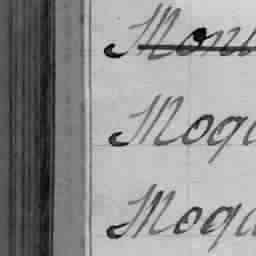 Mon
Moga
Moga